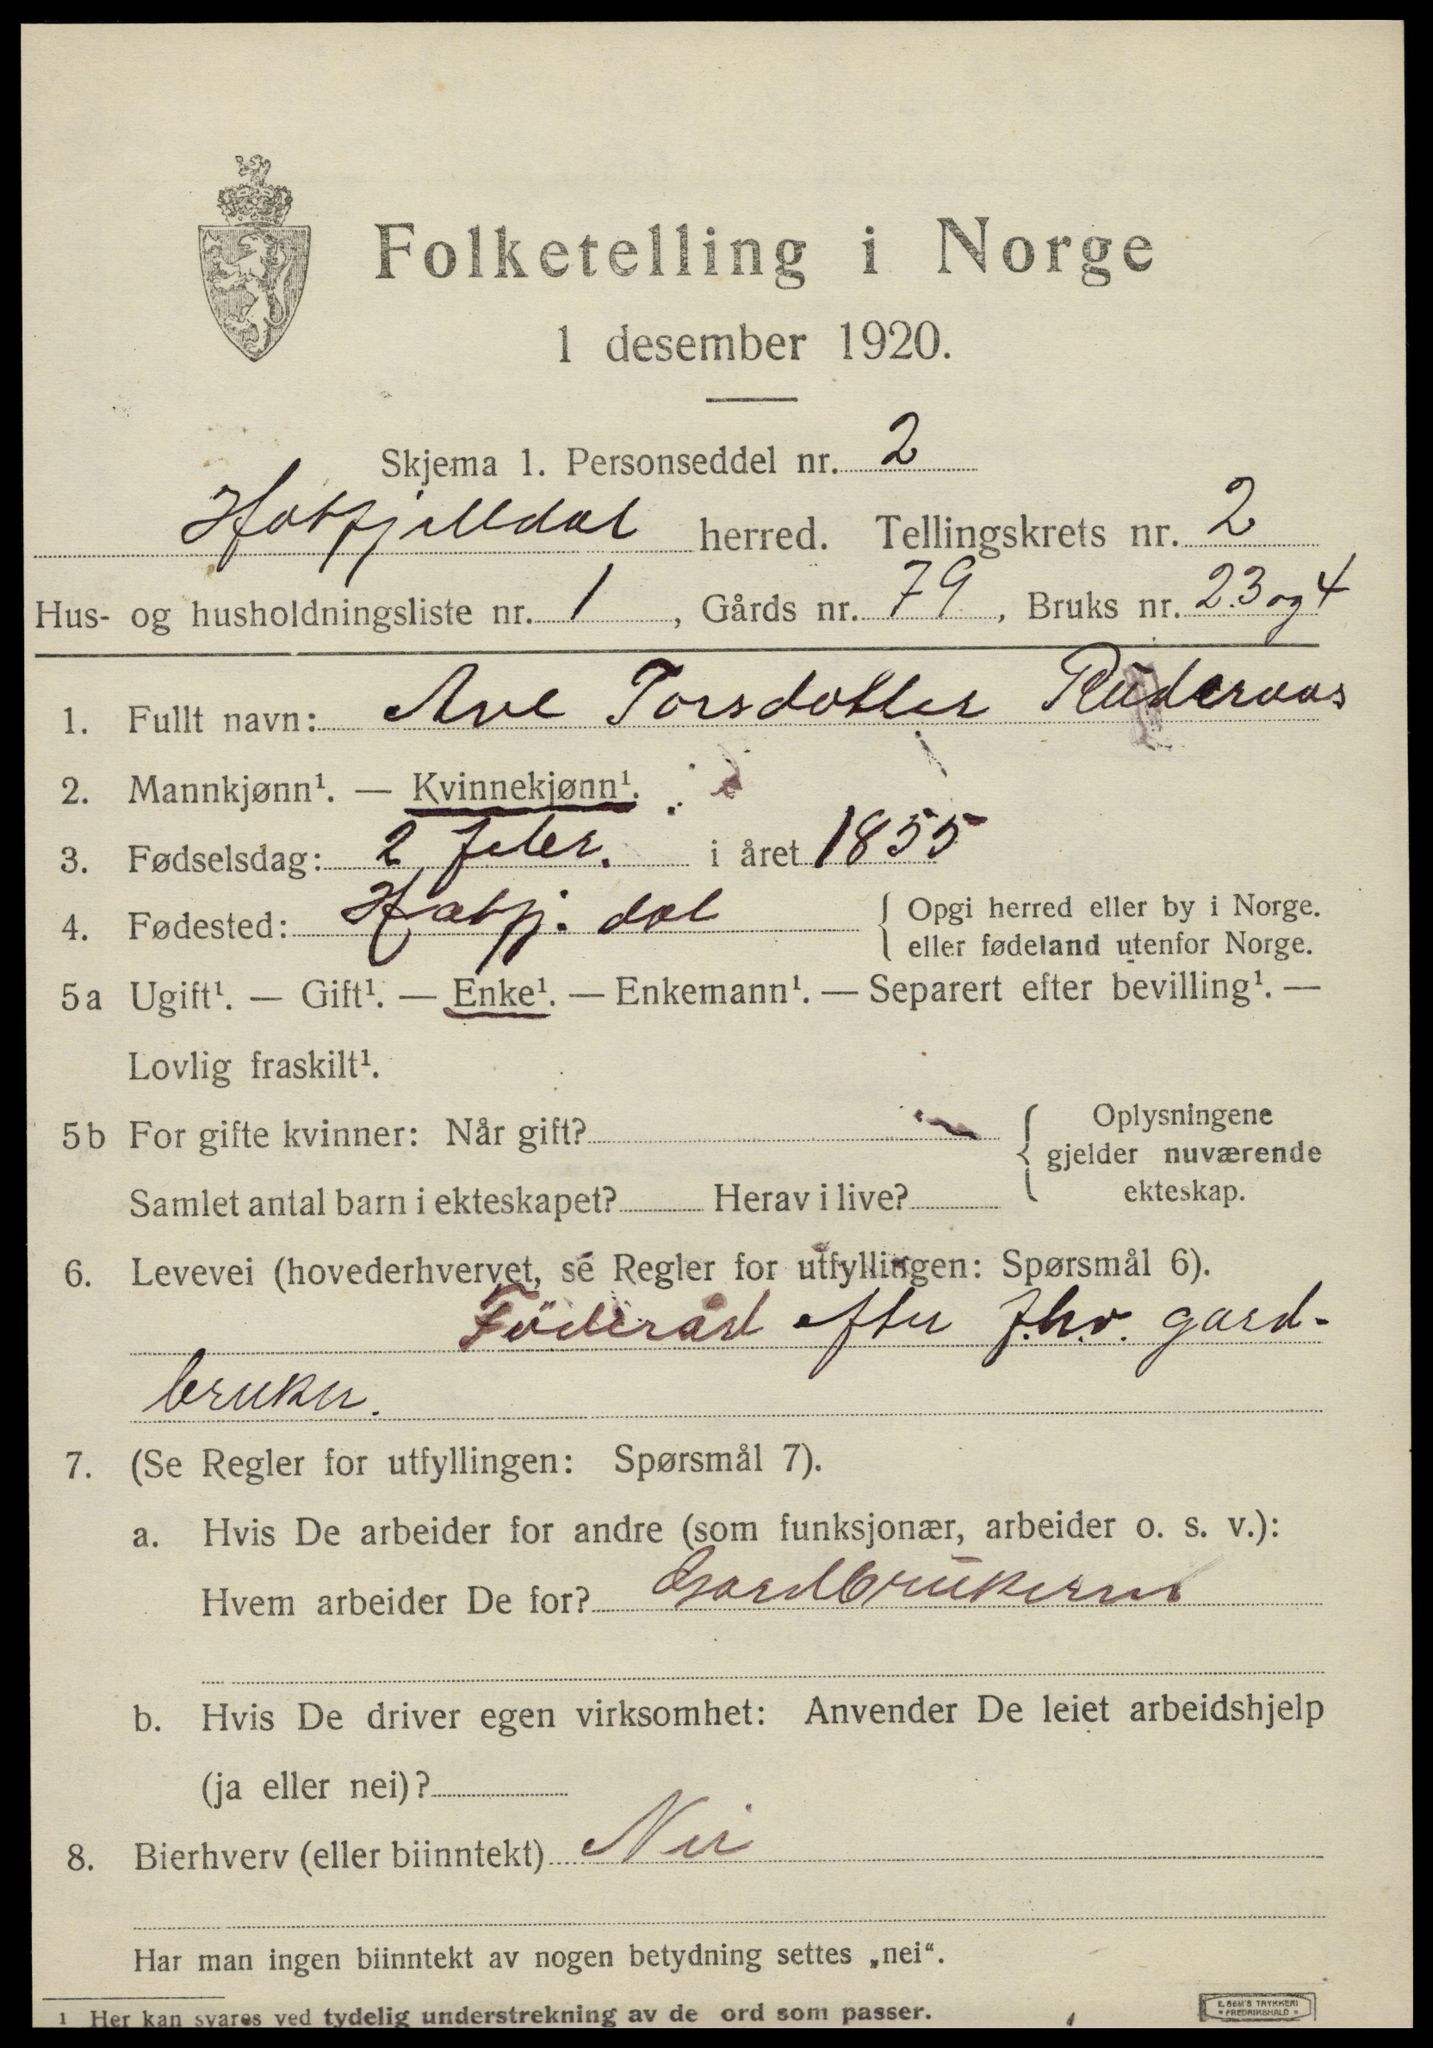 Folketelling i Norge
1 desember 1920.
Skjema 1. Personseddel nr. 2
Hatfjelldal herred. Tellingskrets nr. 2
Hus- og husholdningsliste nr. 1, Gårds nr. 79, Bruks nr. 2.3 og 4
1. Fullt navn: Ane Torsdotter
2. Mannkjønn¹. — Kvinnekjønn¹.
3. Fødselsdag: 2 feber. i året 1855
4. Fødested: Hatfj. dal { Opgi herred eller by i Norge.
eller fødeland utenfor Norge.
5a Ugift¹. — Gift¹. — Enke¹. — Enkemann¹. — Separert efter bevilling¹. —
Lovlig fraskilt¹.
5b For gifte kvinner: Når gift? { Oplysningene
gjelder nuværende
ekteskap.
Samlet antal barn i ekteskapet? Herav i live?
6. Levevei (hovederhvervet, se Regler for utfyllingen: Spørsmål 6).
Föderåd efter f.h.v. gard-
bruker.
7. (Se Regler for utfyllingen: Spørsmål 7).
a. Hvis De arbeider for andre (som funksjonær, arbeider o. s. v.):
Hvem arbeider De for? Gardbrukeren
b. Hvis De driver egen virksomhet: Anvender De leiet arbeidshjelp
(ja eller nei)?
8. Bierhverv (eller biinntekt) Nei
Har man ingen biinntekt av nogen betydning settes „nei“.
¹ Her kan svares ved tydelig understrekning av de ord som passer.
E. SEM'S TRYKKERI
FREDRIKSHALD